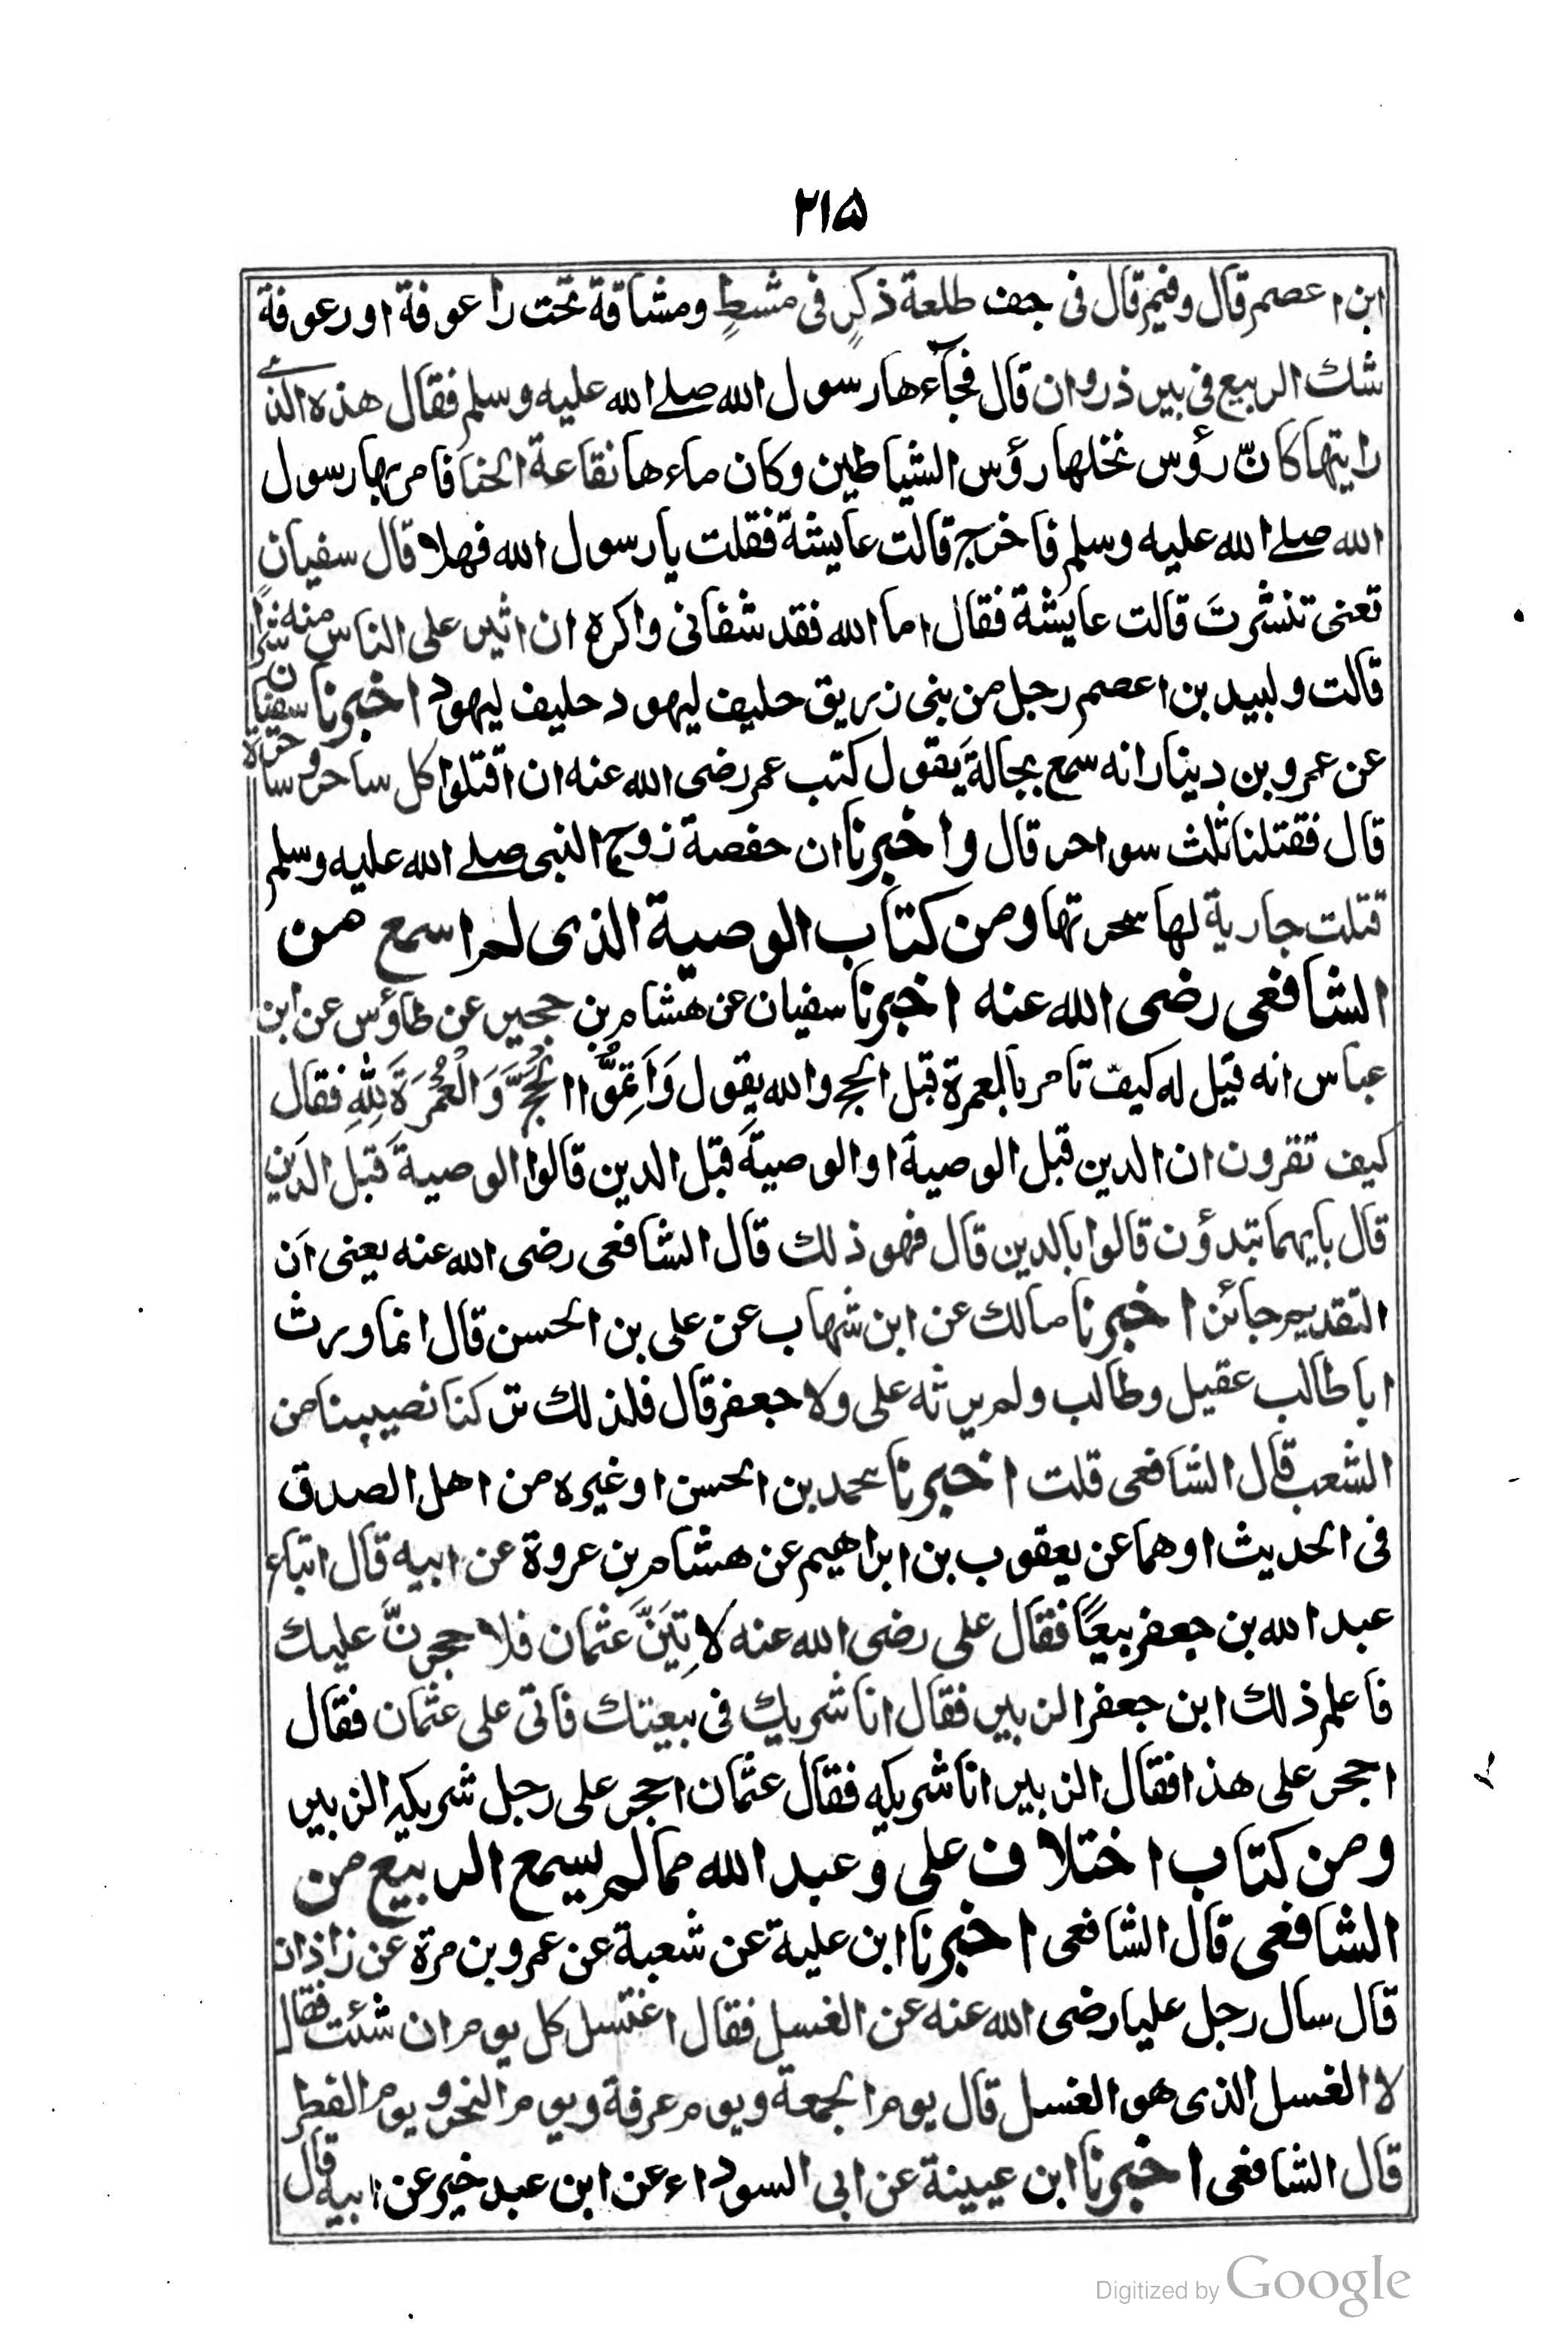 ۲۱۵
ابن اعصم قال وفيم قال فى جف طلعة ذكرٍ فى مشطٍ ومشاقة تحت راعوفة او رعوفة
شك الربيع فى بير ذروان قال فجآءها رسول الله صلے الله عليه وسلم فقال هذه الذے
رايتها كانّ رؤس نخلها رؤس الشياطين وكان ماءها نقاعة الحنا فامر بها رسول
الله صلے الله عليه وسلم فاخرج قالت عايشة فقلت يا رسول الله فهلا قال سفيان
تعنى تنشرتَ قالت عايشة فقال اما الله فقد شفانى واكره ان اثير على الناس منه شرًا
قالت ولبيد بن اعصم رجل من بنى زريق حليف ليهود حليف ليهود اخبرنا سفيان
عن عمرو بن دينار انه سمع بجالة يقول كتب عمر رضى الله عنه ان اقتلوا كل ساحر وساحرة
قال فقتلنا ثلث سواحر قال واخبرنا ان حفصة زوج النبى صلے الله عليه وسلم
قتلت جارية لها سحرتها ومن كتاب الوصية الذى لم اسمع من
الشافعى رضى الله عنه اخبرنا سفيان عن هشام بن حجير عن طاؤس عن ابن
عباس انه قيل له كيف تامر بالعمرة قبل الحج والله يقول وَاَتِمُّوا الْحَجَّ وَالْعُمْرَةَ لِلّٰهِ فقال
كيف تقرون ان الدين قبل الوصية او الوصية قبل الدين قالوا الوصية قبل الدين
قال بايهما تبدؤن قالوا بالدين قال فهو ذلك قال الشافعى رضى الله عنه يعنى ان
التقديم جائز اخبرنا مالك عن ابن شهاب عن على بن الحسن قال انما ورث
ابا طالب عقيل وطالب ولم يرثه على ولا جعفر قال فلذلك تركنا نصيبنا من
الشعب قال الشافعى قلت اخبرنا محمد بن الحسن او غيره من اهل الصدق
فى الحديث اوهما عن يعقوب بن ابراهيم عن هشام بن عروة عن ابيه قال ابتاء
عبد الله بن جعفر بيعًا فقال على رضى الله عنه لاتِيَنَّ عثمان فلاحجرنَّ عليك
فاعلم ذلك ابن جعفر الزبير فقال انا شريك فى بيعتك فاتى على عثمان فقال
احجر على هذا فقال الزبير انا شريكه فقال عثمان احجر على رجل شريكه الزبير
ومن كتاب اختلاف على وعبد الله مما لم يسمع الربيع من
الشافعى قال الشافعى اخبرنا ابن علية عن شعبة عن عمرو بن مرة عن زاذان
قال سال رجل عليا رضى الله عنه عن الغسل فقال اغتسل كل يوم ان شئت فقال
لا الغسل الذى هو الغسل قال يوم الجمعة ويوم عرفة ويوم النحر ويوم الفطر
قال الشافعى اخبرنا ابن عيينة عن ابى السوداء عن ابن عبد خير عن ابيه قال
Digitized by Google